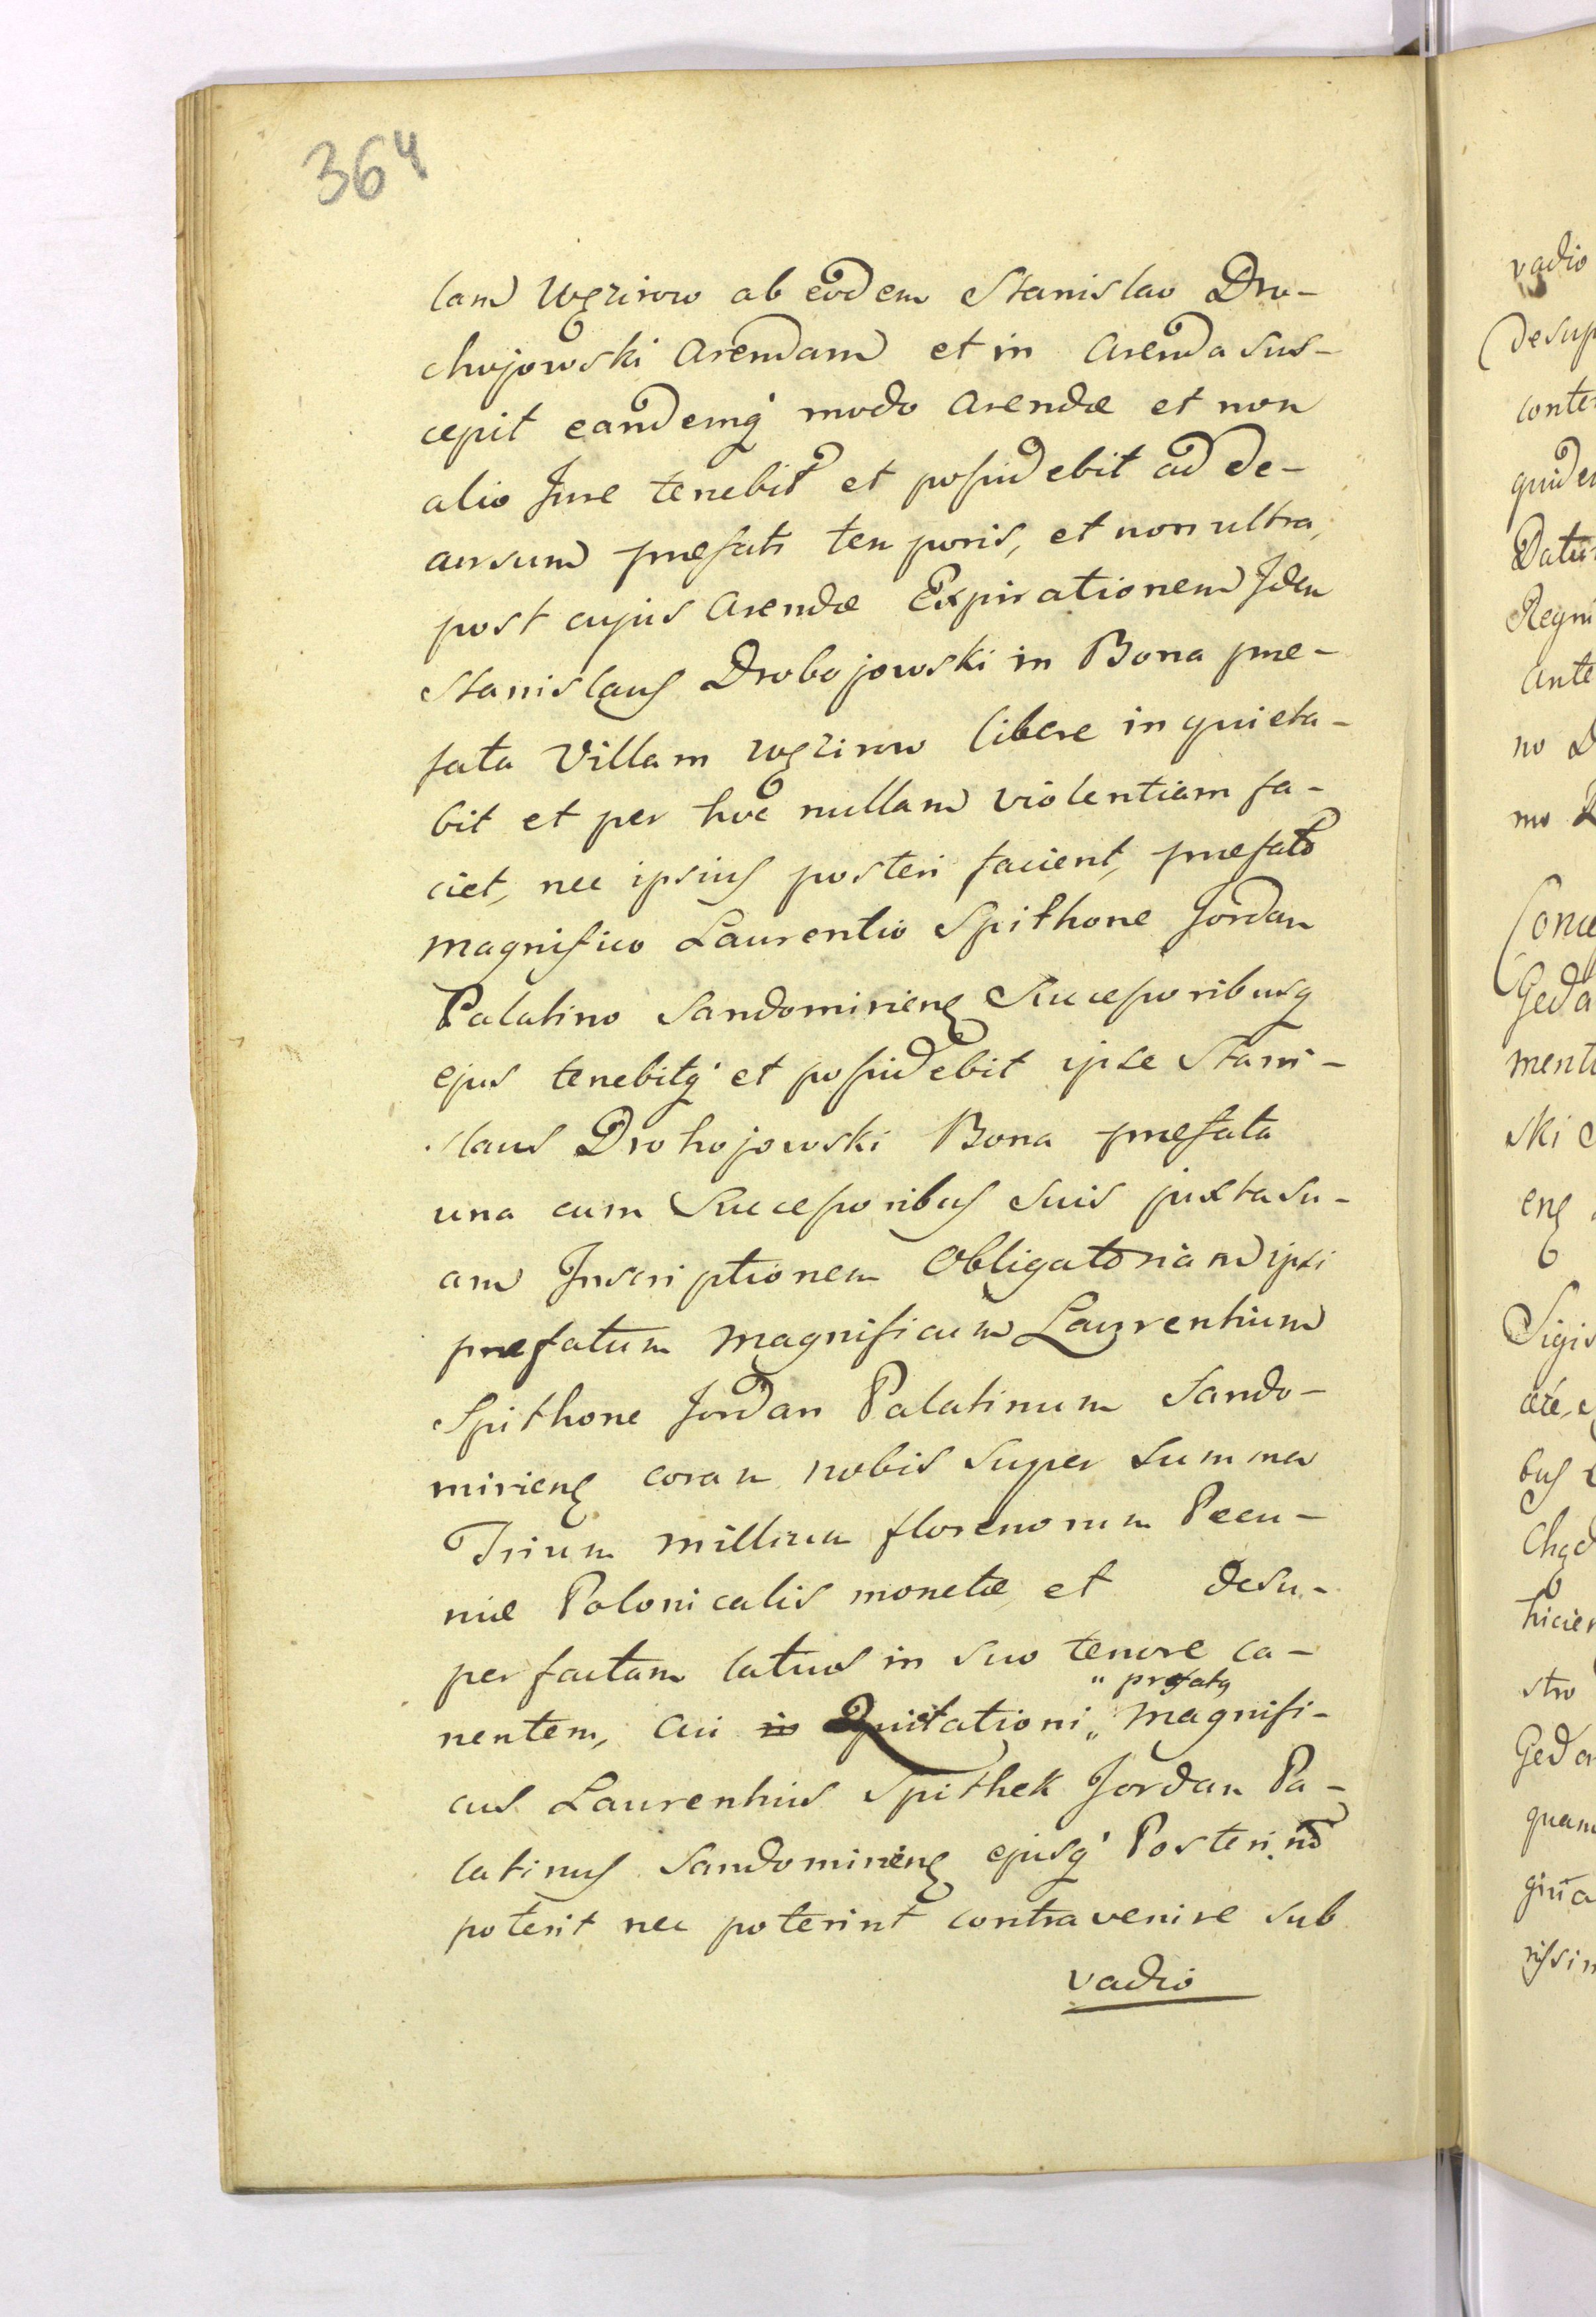 364
lam Węzirow ab eodem Stanislao Dro-
chojowski arendam et in arenda sus-
cepit eandemq' modo arendæ et non
alio Jure tenebit et possidebit ad de-
cursum præfati temporis, et non ultra,
post cujus arendæ Expirationem Idem
Stanislaus Drohojowski in Bona præ-
fata Villam Węzirow libere inquieta-
bit et per hoc nullam violentiam fa-
ciet, nec ipsius posteri facient, præfato
Magnifico Laurentio Spithone Jordan
Palatino Sandomirienς Successoribusq
ejus tenebitq' et possidebit ipse Stani-
slaus Drohojowski Bona præfata
una cum Successoribus suis juxta su-
am Inscriptionem Obligatoriam ipsi
præfatum Magnificum Laurentium
Spithone Jordan Palatinum Sando-
mirienς coram nobis super summa
Trium millium florenorum Pecu-
niæ Polonicalis monetæ et desu-
per factam latius in suo tenore ca-
nentem, cui Quitationi „ Magnifi-
" præfatus
cus Laurentius Spithek Jordan Pa-
latinus Sandomirienς ejusq' Posteri nō
poterit nec poterint contravenire sub
vadio
vadio
desup
conte
quide
Datu
Regni
ante
no D
mo
Conce
Geda
ment
ski
enς
Sigis
bus
Chęc
hicie
stro
Geda
quam
rissi